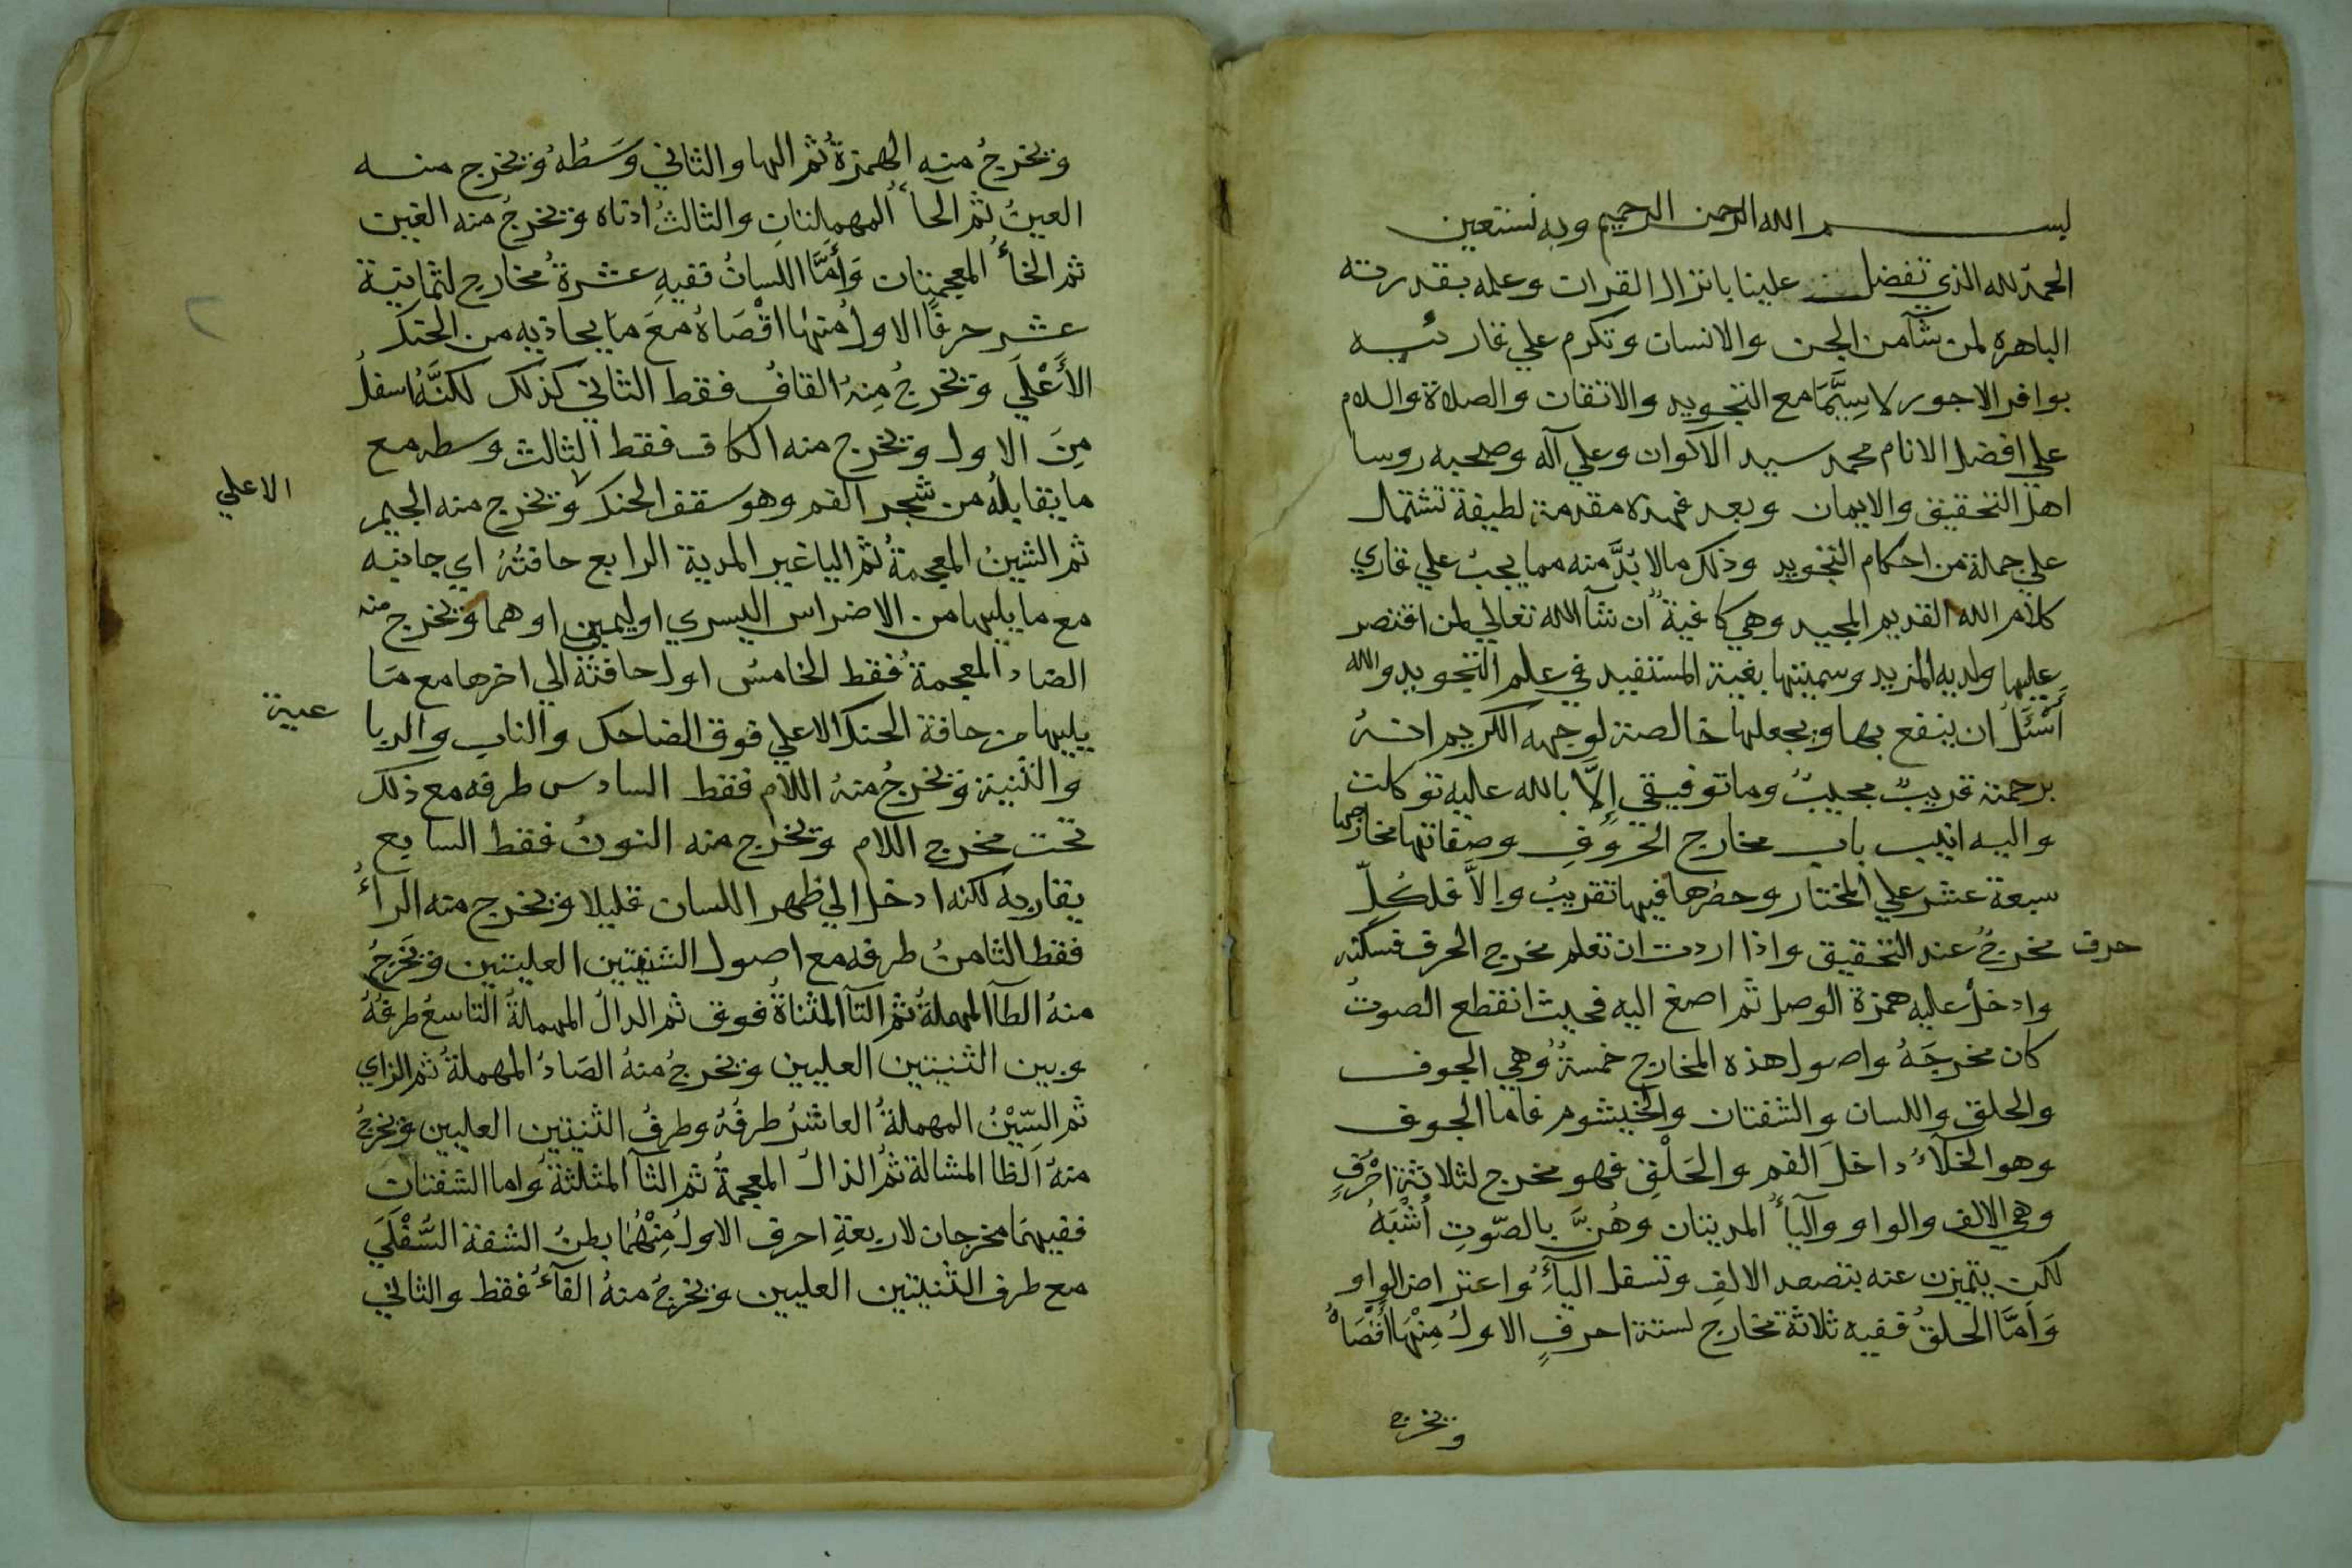 بسم الله الرحمن الرحيم وبه نستعين
الحمد لله الذي تفضل علينا بانزال القران وعلمه بقدرته
الباهرة لمن شآ من الجن والانسان وتكرم علي قارئيه
بوافر الاجور لا سِيَّمَا مع التجويد والاتقان والصلاة والسلام
علي افضل الانام محمد سيد الاكوان وعلي آله وصحبه روسا
اهل التحقيق والايمان وبعد فهذه مقدمة لطيفة تشتمل
علي جملة من احكام التجويد وذلك مالا بُدَّ منه مما يجب علي قاري
كلام الله القديم المجيد وهي كافية ان شآ الله تعالي لمن اقتصر
عليها ولديه المزيد وسميتها بغية المستفيد في علم التجويد والله
أَسْئَلُ ان ينفع بها ويجعلها خالصة لوجهه الكريم انهُ
برحمته قريبٌ مجيبٌ وما توفيقي إِلَّا بالله عليه توكلت
واليه انيب باب مخارج الحُرُوفِ وصفاتها مخارجها
سبعة عشر علي المختار وحصرها فيها تقريبٌ وإلَّا فلكُلِّ
حرف مخرجٌ عند التحقيق واذا اردت ان تعلم مخرج الحرف فسكنه
وادخل عليه همزة الوصل ثم اصغ اليه فحيث انقطع الصوتُ
كان مخرجَهُ واصول هذه المخارج خمسةٌ وهي الجوف
والحلق واللسان والشفتان والخيشوم فاما الجوف
وهو الخلآءُ داخلَ الفم والحَلْقِ فهو مخرج لثلاثة احْرُفٍ
وهي الالف والواو واليآءُ المديتان وهُنَّ بالصّوتِ أَشْبَهُ
لكن يتميزن عنه بتصعد الالفِ وتسفل اليآءِ واعتراض الواو
وَأَمَّا الحلقُ ففيه ثلاثة مخارج لستة احرفٍ الاولُ مِنْهَا أَقْصَاهُ
ويخرج
ويخرجُ منه الهمزةُ ثم الها والثاني وَسَطُهُ ويخرج منه
العينُ ثم الحاءُ المهملتانِ والثالثُ ادناه ويخرجُ منه الغين
ثم الخاءُ المعجمتان وَأَمَّا اللسانُ ففيهِ عشرةُ مخارج لثمانية
عشر حرفًا الاولُ مُنِهَا اقْصَاهُ مَعَ ما يحاذيه من الحنك
الأَعْلَي ويخرجُ مِنهُ القافُ فقط الثاني كذلك لكنَّهُ اسفلُ
مِنَ الاول ويخرج منه الكاف فقط الثالث وسطه مع
ما يقابلُه من شجر الفم وهو سقف الحنك ويخرج منه الجيم
الاعلي
ثم الشينُ المعجمةُ ثم اليا غير المدية الرابع حافتُهُ اي جانبه
مع ما يليها من الاضراس اليسري او اليمين او هما ويخرج منه
الضاد المعجمةُ فقط الخامس اول حافتَه الي اخرها مع مَا
يليها من حافة الحنك الاعلي فوق الضاحك والناب والربا
عية
والثنية ويخرجُ منهُ اللام فقط السادس طرفه مع ذلك
تحت مخرج اللام ويخرج منه النونُ فقط السابع
يقاربه لكنه ادخل الي ظهر اللسان قليلا ويخرج منه الراءُ
فقط الثامنُ طرفه مع اصول الثنيتين العليتين ويَخرجُ
منهُ الطآ المهملةُ ثم التآ المثناةُ فوق ثم الدالُ المهملةُ التاسعُ طرفُهُ
وبين الثنيتين العليين ويخرجُ منهُ الصَادُ المهملةُ ثم الزاي
ثم السِّيْنُ المهملةُ العاشرُ طرفُهُ وطرفُ الثنيتين العليين ويخرجُ
منهُ الظا المشالة ثمَ الذالُ المعجمةُ ثم الثآ المثلثةُ واما الشفتان
ففيهَما مخرجان لاربعةِ احرف الاولُ مِنْهُمَا بطنُ الشفة السُّفْلَي
مع طرف الثنيتين العليين ويخرجُ منهُ الفآءُ فقط والثاني